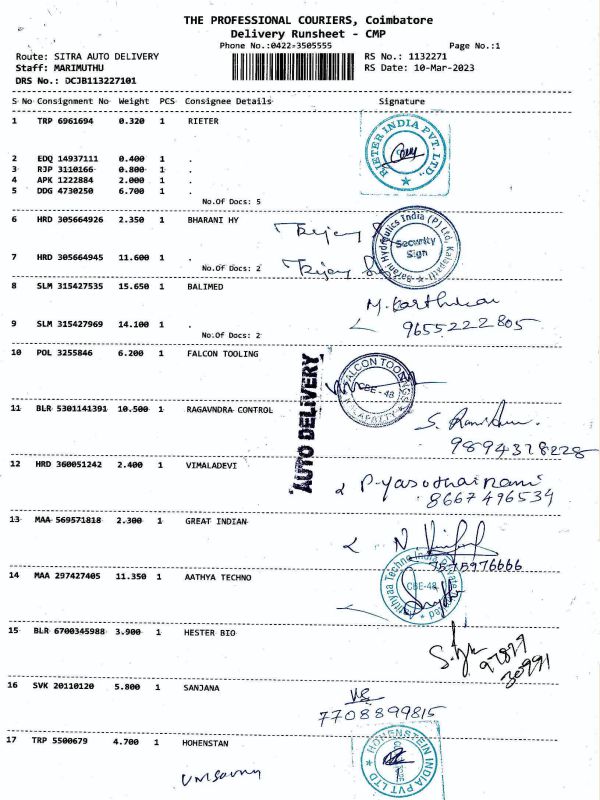 THE PROFESSIONAL COURIERS, Coimbatore
Delivery Runsheet - CMP
Phone No.:0422-3505555 Page No.:1
Route: SITRA AUTO DELIVERY RS No.: 1132271
Staff: MARIMUTHU RS Date: 10-Mar-2023
DRS No.: DCJB113227101
S No Consignment No Weight PCS Consignee Details Signature
1 TRP 6961694 0.320 1 RIETER
RIETER INDIA PVT. LTD.
2 EDQ 14937111 0.400 1 .
3 RJP 3110166 0.800 1 .
4 APK 1222884 2.000 1 .
5 DDG 4730250 6.700 1 .
No.Of Docs: 5
6 HRD 305664926 2.350 1 BHARANI HY
Hydraulics India (P) Ltd, Kalapatti
Security
Sign
7 HRD 305664945 11.600 1 .
No.Of Docs: 2
8 SLM 315427535 15.650 1 BALIMED
M. Karthikeyan
9 SLM 315427969 14.100 1 .
9655222805
No.Of Docs: 2
10 POL 3255846 6.200 1 FALCON TOOLING
FALCON TOOLINGS
CBE - 48
KALAPATTI
AUTO DELIVERY
11 BLR 5301141391 10.500 1 RAGAVNDRA CONTROL
9894378228
12 HRD 360051242 2.400 1 VIMALADEVI
P-yasothairani
8667496534
13 MAA 569571818 2.300 1 GREAT INDIAN
14 MAA 297427405 11.350 1 AATHYA TECHNO
Aathyaa Techno India Private Limited
CBE-48
15 BLR 6700345988 3.900 1 HESTER BIO
16 SVK 20110120 5.800 1 SANJANA
7708899815
17 TRP 5500679 4.700 1 HOHENSTAN
HOHENSTEIN INDIA PVT LTD